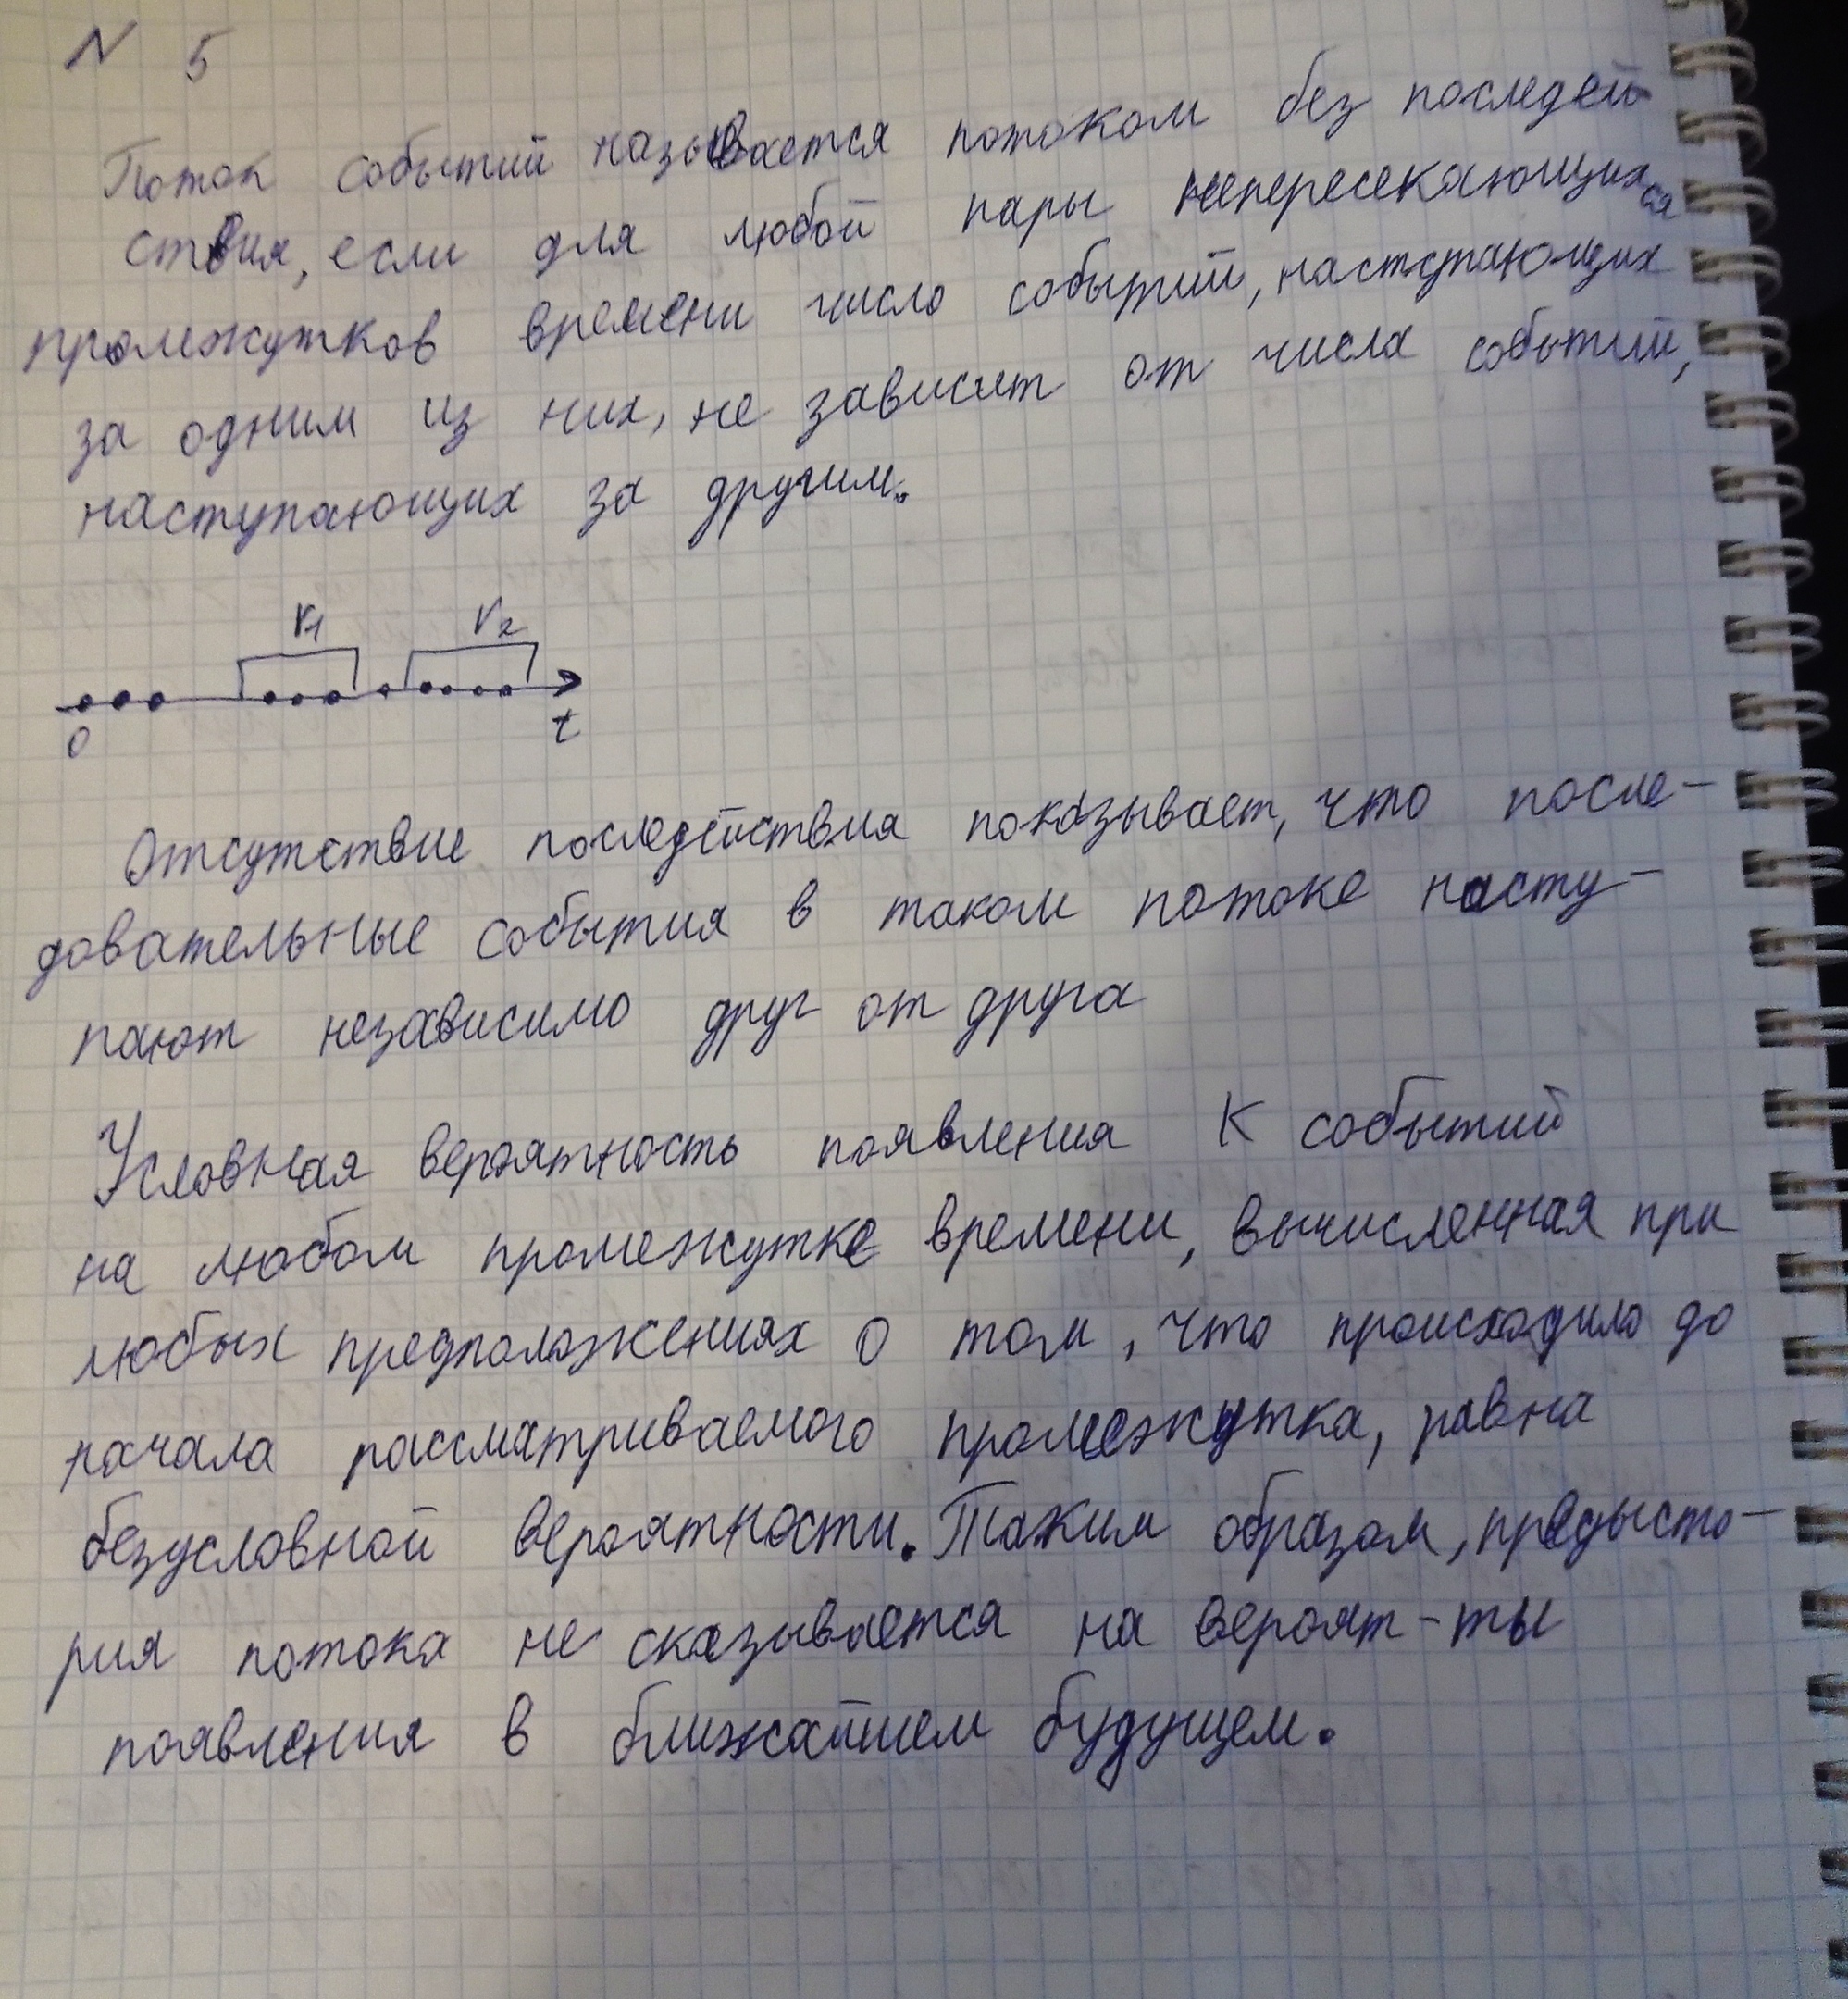 N 5
Поток событий называется потоком без последей
ствия, если для любой пары непересекающихся
промежутков времени число событий, наступающих
за одним из них, не зависит от числа событий,
наступающих за другим.
r1 r2
0 t
Отсутствие последействия показывает, что после-
довательные события в таком потоке насту-
пают независимо друг от друга
Условная вероятность появления K событий
на любом промежутке времени, вычисленная при
любых предположениях о том, что происходило до
начала рассматриваемого промежутка, равна
безусловной вероятности. Таким образом, предысто-
рия потока не сказывается на вероят-ты
появления в ближайшем будущем.